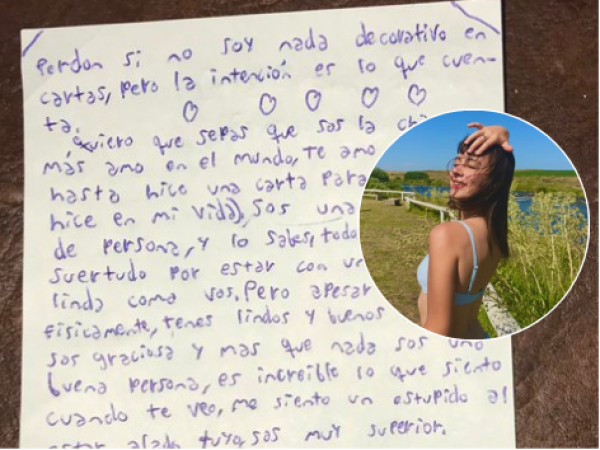 Perdon si no soy nada decorativo en
cartas, pero la intención es lo que cuen-
ta.
Quiero que sepas que sos la
más amo en el mundo, te amo
hasta hice una carta para
hice en mi vida), sos una
de persona, y lo sabes, todo
suertudo por estar con
linda como vos. Pero apesar
fisicamente, tenes lindos y buenos
sos graciosa y mas que nada sos una
buena persona, es increible lo que siento
cuando te veo, me siento un estupido al
estar alado tuyo, sos muy superior.